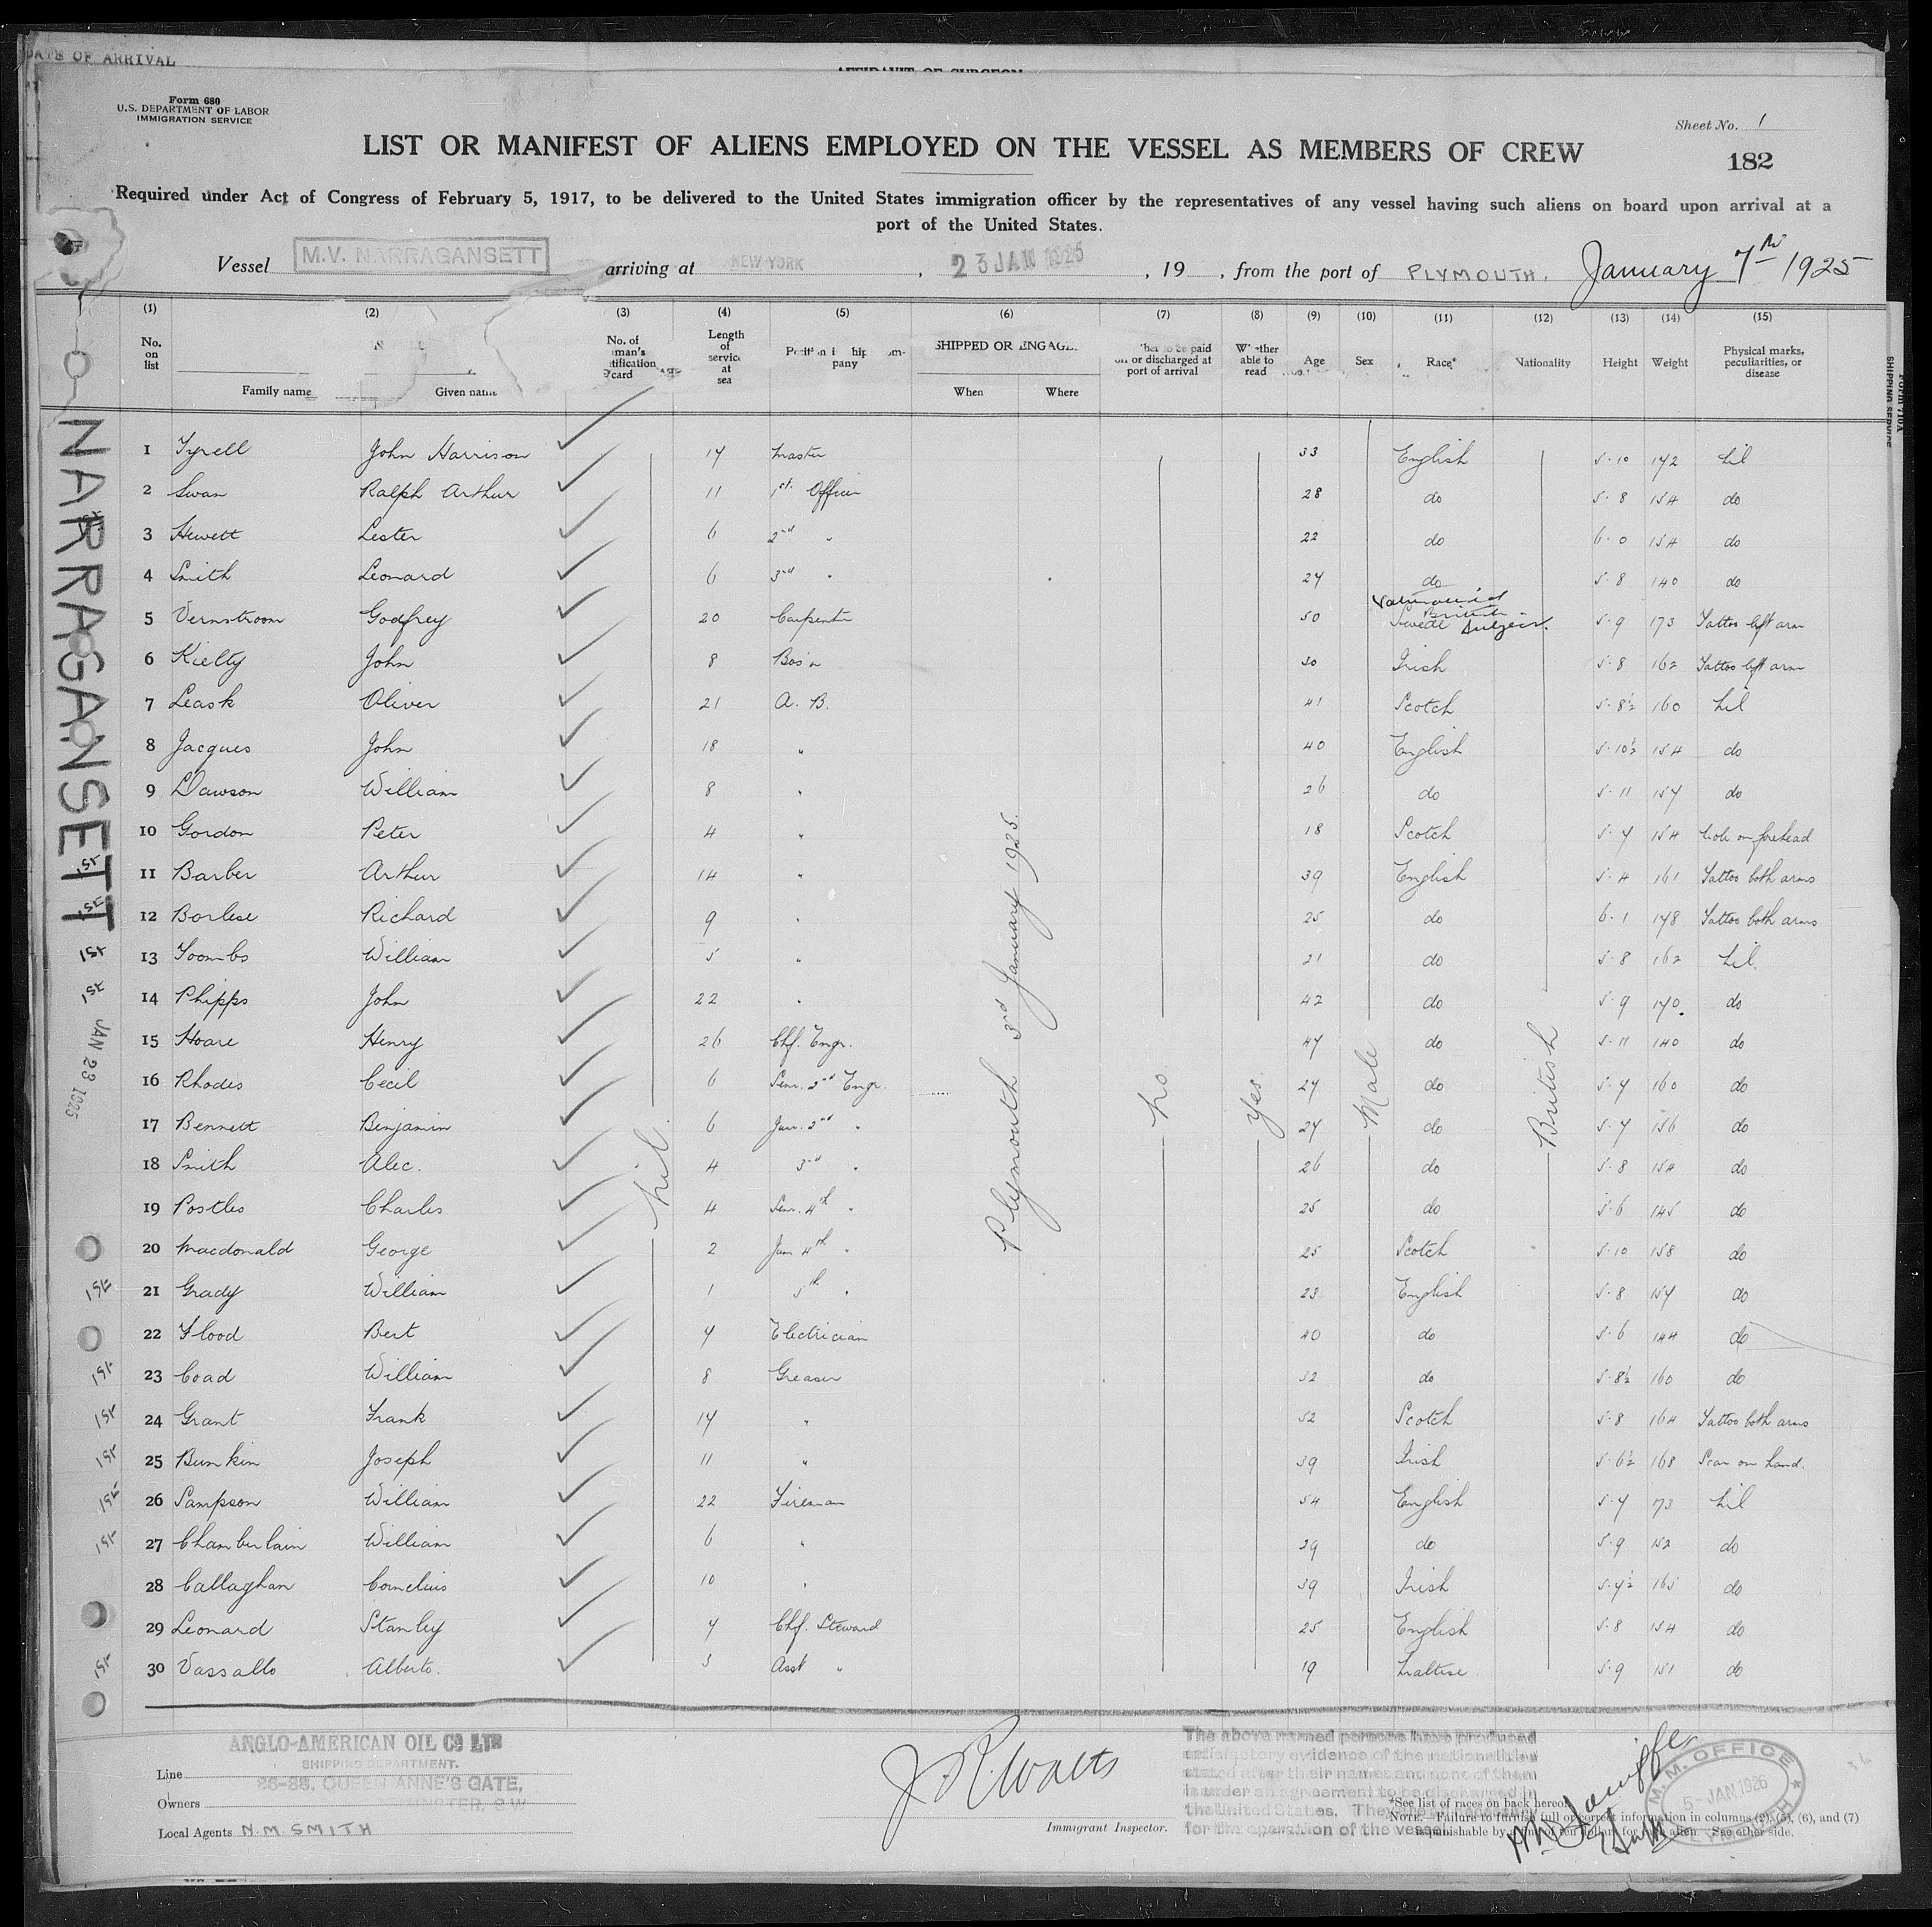 DATE OF ARRIVAL
AFFIDAVIT OF SURGEON
Form 680
U.S. DEPARTMENT OF LABOR
IMMIGRATION SERVICE
Sheet No. 1
LIST OR MANIFEST OF ALIENS EMPLOYED ON THE VESSEL AS MEMBERS OF CREW
182
Required under Act of Congress of February 5, 1917, to be delivered to the United States immigration officer by the representatives of any vessel having such aliens on board upon arrival at a
port of the United States.
Vessel M.V. NARRAGANSETT arriving at NEW YORK, 23 JAN 1925, 19 , from the port of PLYMOUTH, January 7th 1925
(1) (2) (3) (4) (5) (6) (7) (8) (9) (10) (11) (12) (13) (14) (15)
No. on list Family name Given name No. of card Length of service at sea pany SHIPPED OR When Where or discharged at port of arrival able to read Age Sex Race* Nationality Height Weight Physical marks, peculiarities, or disease
SHIPPING SERVICE
NARRAGANSETT
1 Tyrell John Harrison 17 Master 33 English 5-10 172 Nil
2 Swan Ralph Arthur 11 1st Officer 28 do 5-8 154 do
3 Hewett Lester 6 2nd " 22 do 6-0 154 do
4 Smith Leonard 6 3rd " 27 do 5-8 140 do
5 Vernstroom Godfrey 20 Carpenter 50 Swede British Subject. 5-9 173 Tattoo left arm
6 Kielty John 8 Bos'n 30 Irish 5-8 162 Tattoo left arm
7 Leask Oliver 21 A. B. 41 Scotch 5-8½ 160 Nil
8 Jacques John 18 " 40 English 5-10½ 154 do
9 Dawson William 8 " 26 do 5-11 157 do
10 Gordon Peter 4 " 18 Scotch 5-7 154 Mole on forehead
11 Barber Arthur 14 " 39 English 5-4 161 Tattoo both arms
12 Borlese Richard 9 " 25 do 6-1 178 Tattoo both arms
13 Toombs William 5 " 21 do 5-8 162 Nil.
14 Phipps John 22 " 42 do 5-9 170 do
15 Hoare Henry 26 Chf. Engr. 47 do 5-11 140 do
16 Rhodes Cecil 6 Senr. 2nd Engr. 27 do 5-7 160 do
17 Bennett Benjamin 6 Junr. 2nd " 27 do 5-7 156 do
18 Smith Alec. 4 3rd " 26 do 5-8 154 do
19 Postles Charles 4 Senr. 4th " 25 do 5-6 145 do
20 Macdonald George 2 Junr 4th " 25 Scotch 5-10 158 do
21 Grady William 1 5th " 23 English 5-8 157 do
22 Flood Bert 7 Electrician 40 do 5-6 144 do
23 Coad William 8 Greaser 32 do 5-8½ 160 do
24 Grant Frank 17 " 52 Scotch 5-8 164 Tattoo both arms
25 Bunkin Joseph 11 " 39 Irish 5-6½ 168 Scar on hand.
26 Sampson William 22 Fireman 54 English 5-7 73 Nil
27 Chamberlain William 6 " 29 do 5-9 152 do
28 Callaghan Cornelius 10 " 39 Irish 5-7½ 165 do
29 Leonard Stanley 7 Chf. Steward 25 English 5-8 154 do
30 Vassallo Alberto. 3 Asst " 19 Maltese 5-9 151 do
Nil.
Plymouth 3rd January 1925.
No.
Yes.
Male
British
1st
1st
1st
1st
JAN 23 1925
1st
1st
1st
1st
1st
1st
1st
Line ANGLO-AMERICAN OIL CO LTD
SHIPPING DEPARTMENT.
Owners 36-38, QUEEN ANNE'S GATE,
Local Agents N.M. SMITH
J.R. Watts
Immigrant Inspector.
The above named persons have produced
satisfactory evidence of the nationalities
stated after their names and none of them
is under an agreement to be discharged in
the United States. They are
for the operation of the vessel
*See list of races on back hereof.
NOTE.—Failure to furnish full or correct information in columns (2), (5), (6), and (7)
is punishable by of ten dollars for each alien See other side.
M.M. OFFICE
5-JAN. 1926